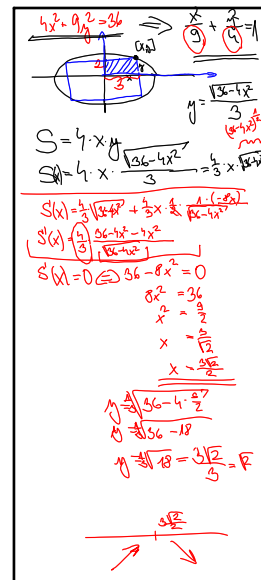 4x² + 9y² = 36 ⟹ x²/9 + y²/4 = 1
2
3
x
y = √(36-4x²)/3
(36-4x²)^(1/2)
S = 4·x·y
S(x) = 4·x·√(36-4x²)/3 = 4/3 x·√(36-4x²)
S'(x) = 4/3 √(36-4x²) + 4/3 x · 1/2 · 1·(-8x)/√(36-4x²)
S'(x) = 4/3 (36-4x²-4x²)/√(36-4x²)
S'(x) = 0 ⟺ 36-8x² = 0
8x² = 36
x² = 9/2
x = 3/√2
x = 3√2/2
y = 1/3 √(36-4·9/2)
y = 1/3 √(36-18)
y = 1/3 √18 = 3√2/3 = √2
3√2/2